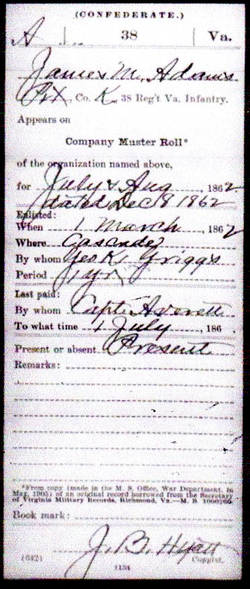 (CONFEDERATE.)
A 38 Va.
James M. Adams
Pvt, Co. K, 38 Reg't Va. Infantry.
Appears on
Company Muster Roll*
of the organization named above,
for July & Aug, 1862
dated Dec 18 1862
Enlisted:
When 1 March, 1862
Where Cascade
By whom Geo K. Griggs
Period 1 yr
Last paid:
By whom Capt. Averett
To what time 1 July, 186
Present or absent Present
Remarks:
*From copy (made in the M. S. Office, War Department, in
May, 1905) of an original record borrowed from the Secretary
of Virginia Military Records, Richmond, Va.—M. S.
Book mark:
J. B. Hyatt
(642) Copyist.